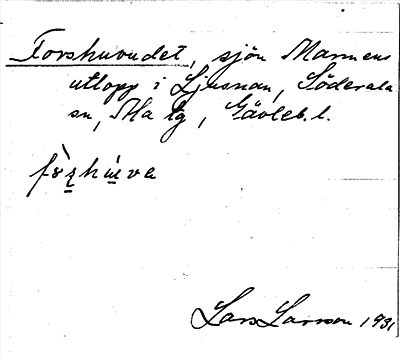 Forshuvudet, sjön Marmens
utlopp i Ljusnan, Söderala
sn, Ma tg, Gävleb. l.
Lars Larsson 1931